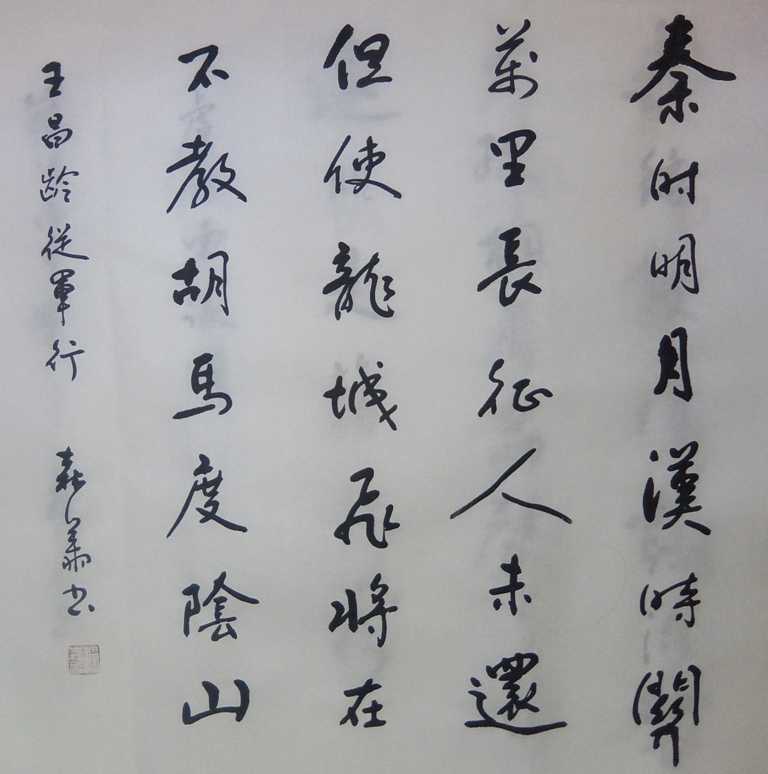 秦时明月漢時關
萬里長征人未還
但使龍城飛將在
不教胡馬度陰山
王昌龄從軍行 書